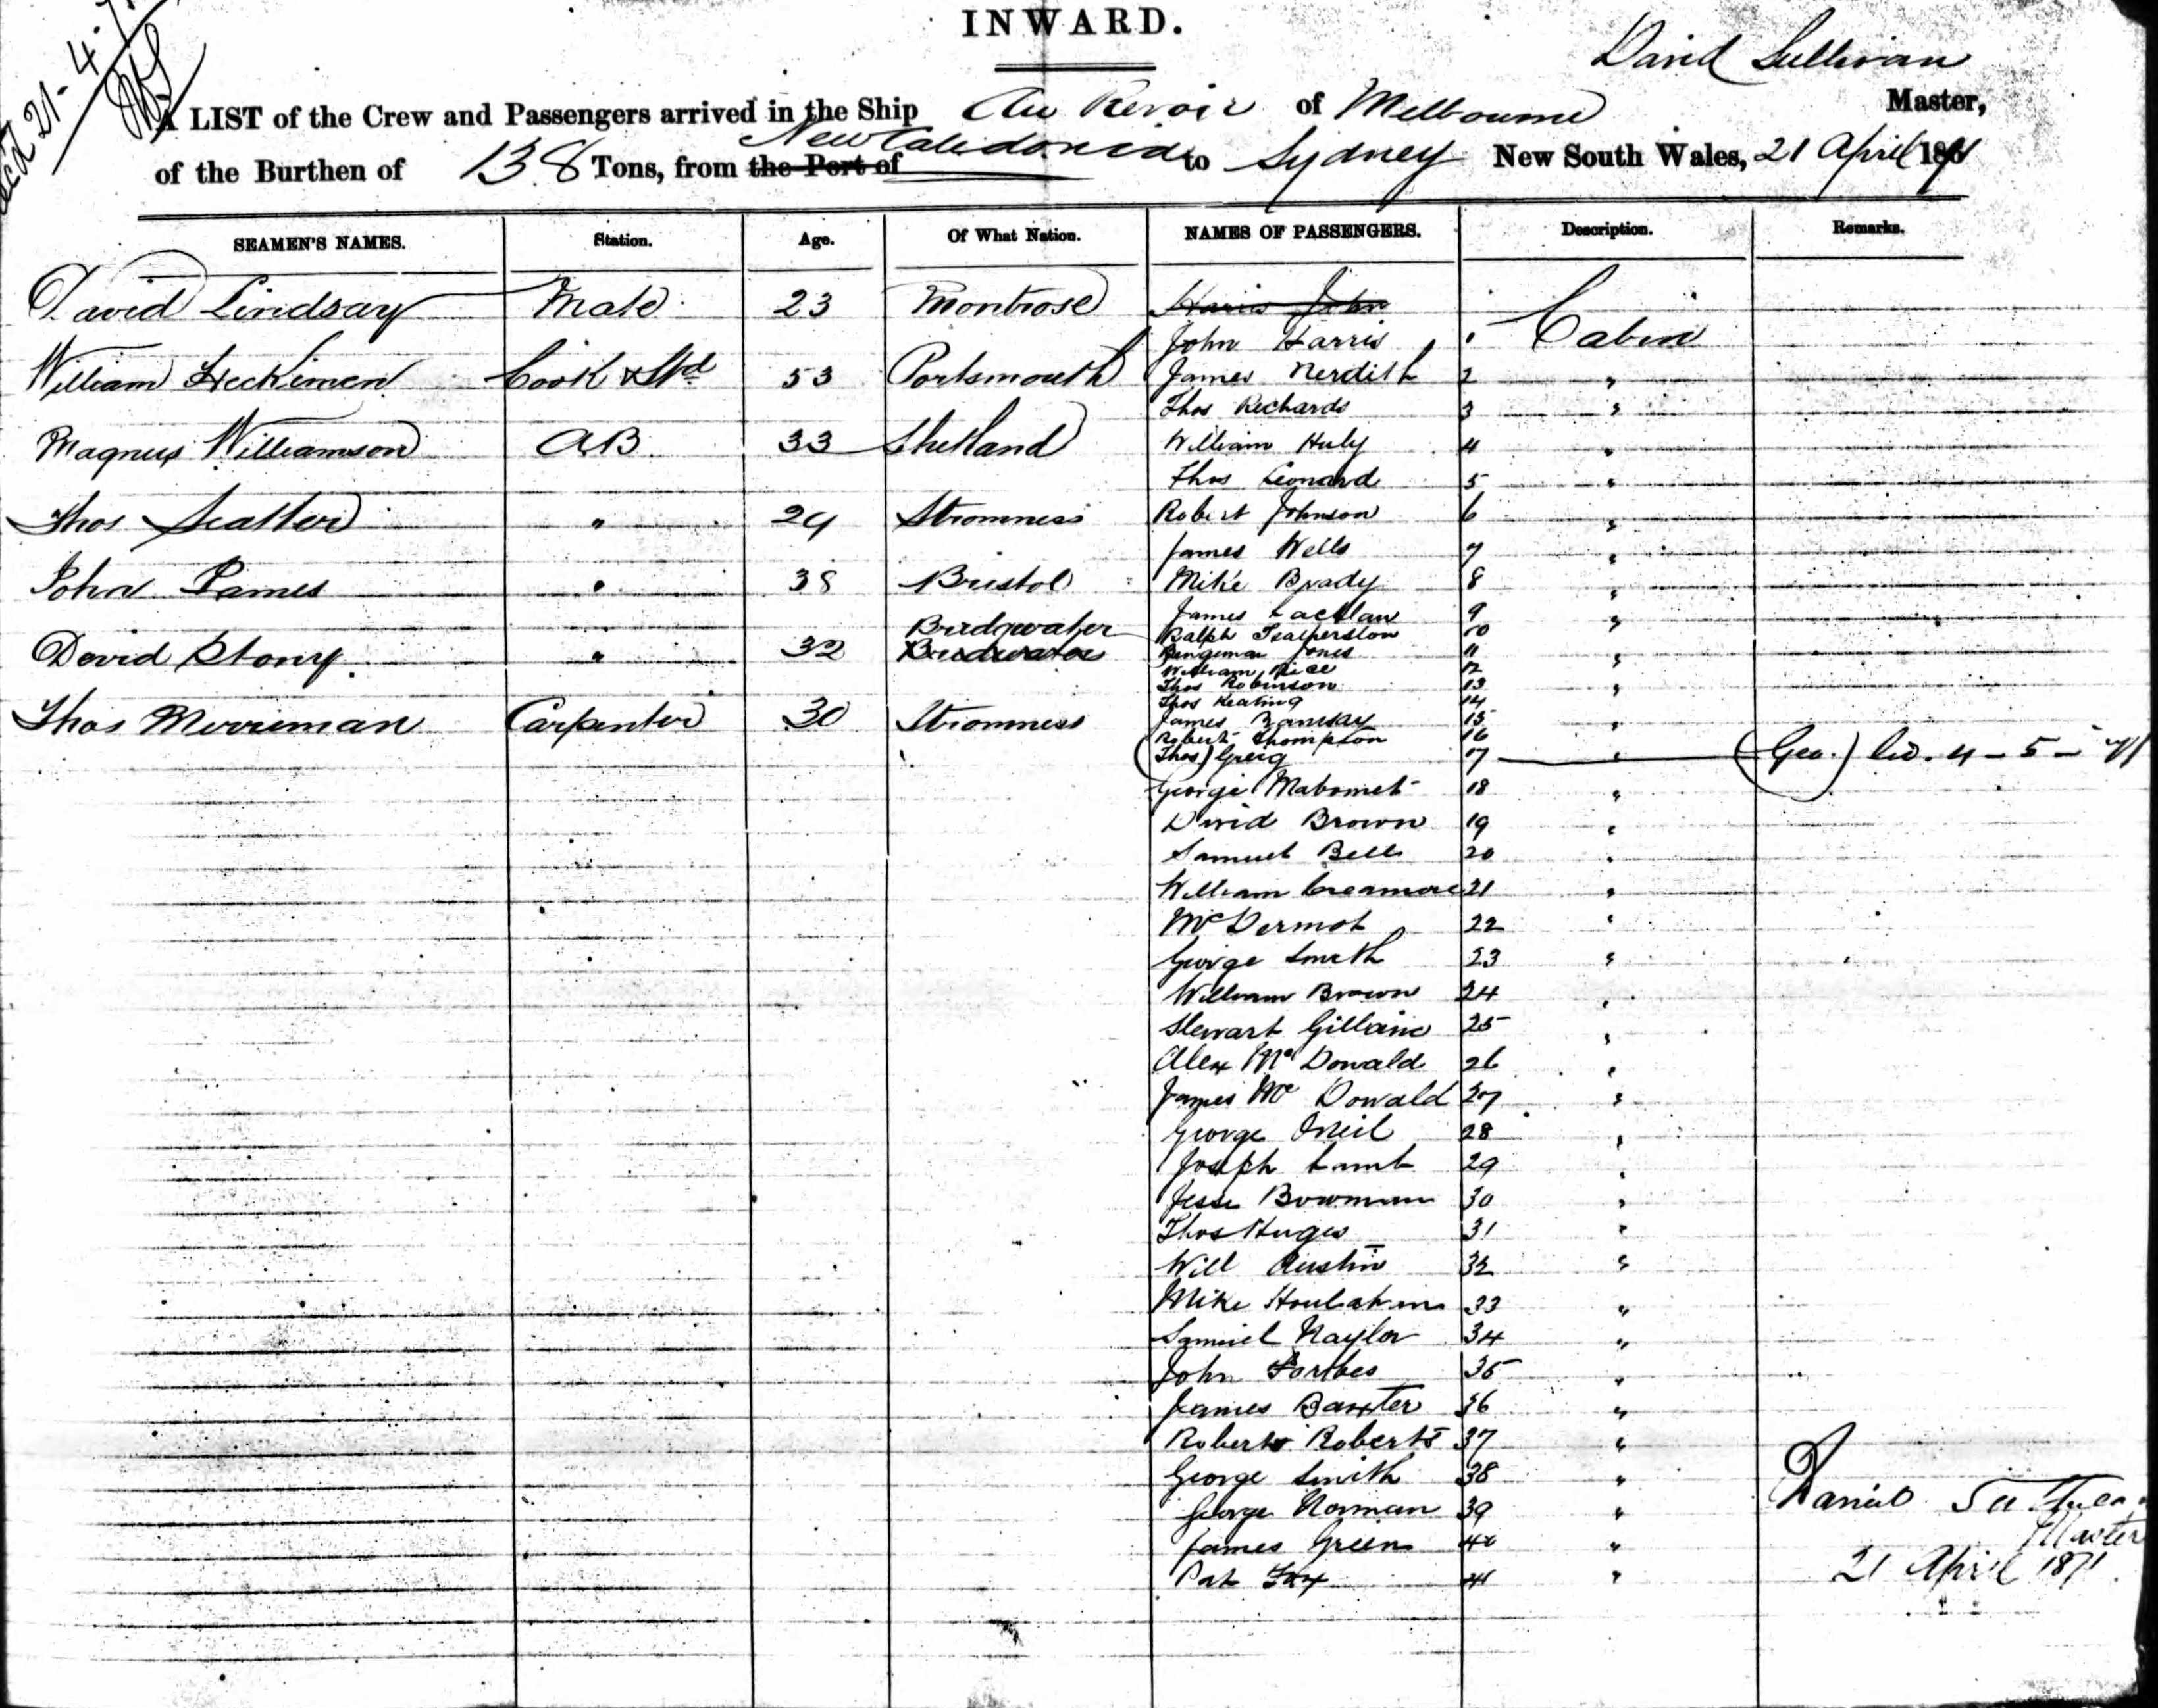 INWARD.
David Sullivan
A LIST of the Crew and Passengers arrived in the Ship Au Revoir of Melbourne Master,
of the Burthen of 138 Tons, from the Port of New Caledonia to Sydney New South Wales, 21 April 1871
SEAMEN'S NAMES. Station. Age. Of What Nation. NAMES OF PASSENGERS. Description. Remarks.
David Lindsay Mate 23 Montrose Harris John
John Harris 1 Cabin
William Heckimen Cook & Std 53 Portsmouth James Nerdith 2 "
Thos Richards 3 "
Magnus Williamson AB 33 Shetland William Huly 4 "
Thos Leonard 5 "
Thos Scatter " 24 Stromness Robert Johnson 6 "
James Wells 7 "
John James " 38 Bristol Mike Brady 8 "
James Lachlan 9 "
Bridgwater Ralph 10
David Stony " 32 Bridwater Jones 11 "
William Rice 12
Thos Robinson 13 "
Thos Keating 14
Thos Merriman Carpenter 30 Stromness James Ramsay 15 "
Robert Thompson 16
(Thos) Greig 17 " (Geo.) 4-5-71
George Mahomet 18 "
David Brown 19 "
Samuel Bell 20 "
William Creamore 21 "
McDermot 22 "
George Smith 23 "
William Brown 24 "
Stewart Gillaine 25 "
Alex McDonald 26 "
James McDonald 27 "
George Oneil 28 "
Joseph Lamb 29 "
Jesse Bowman 30 "
Thos Huges 31 "
Will Austin 32 "
Mike Houlahan 33 "
Samuel Naylor 34 "
John Forbes 35 "
James Baxter 36 "
Robert Roberts 37 "
George Smith 38 "
George Norman 39 "
James Green 40 "
Pat Fox 41 "
Daniel
Master
21 April 1871